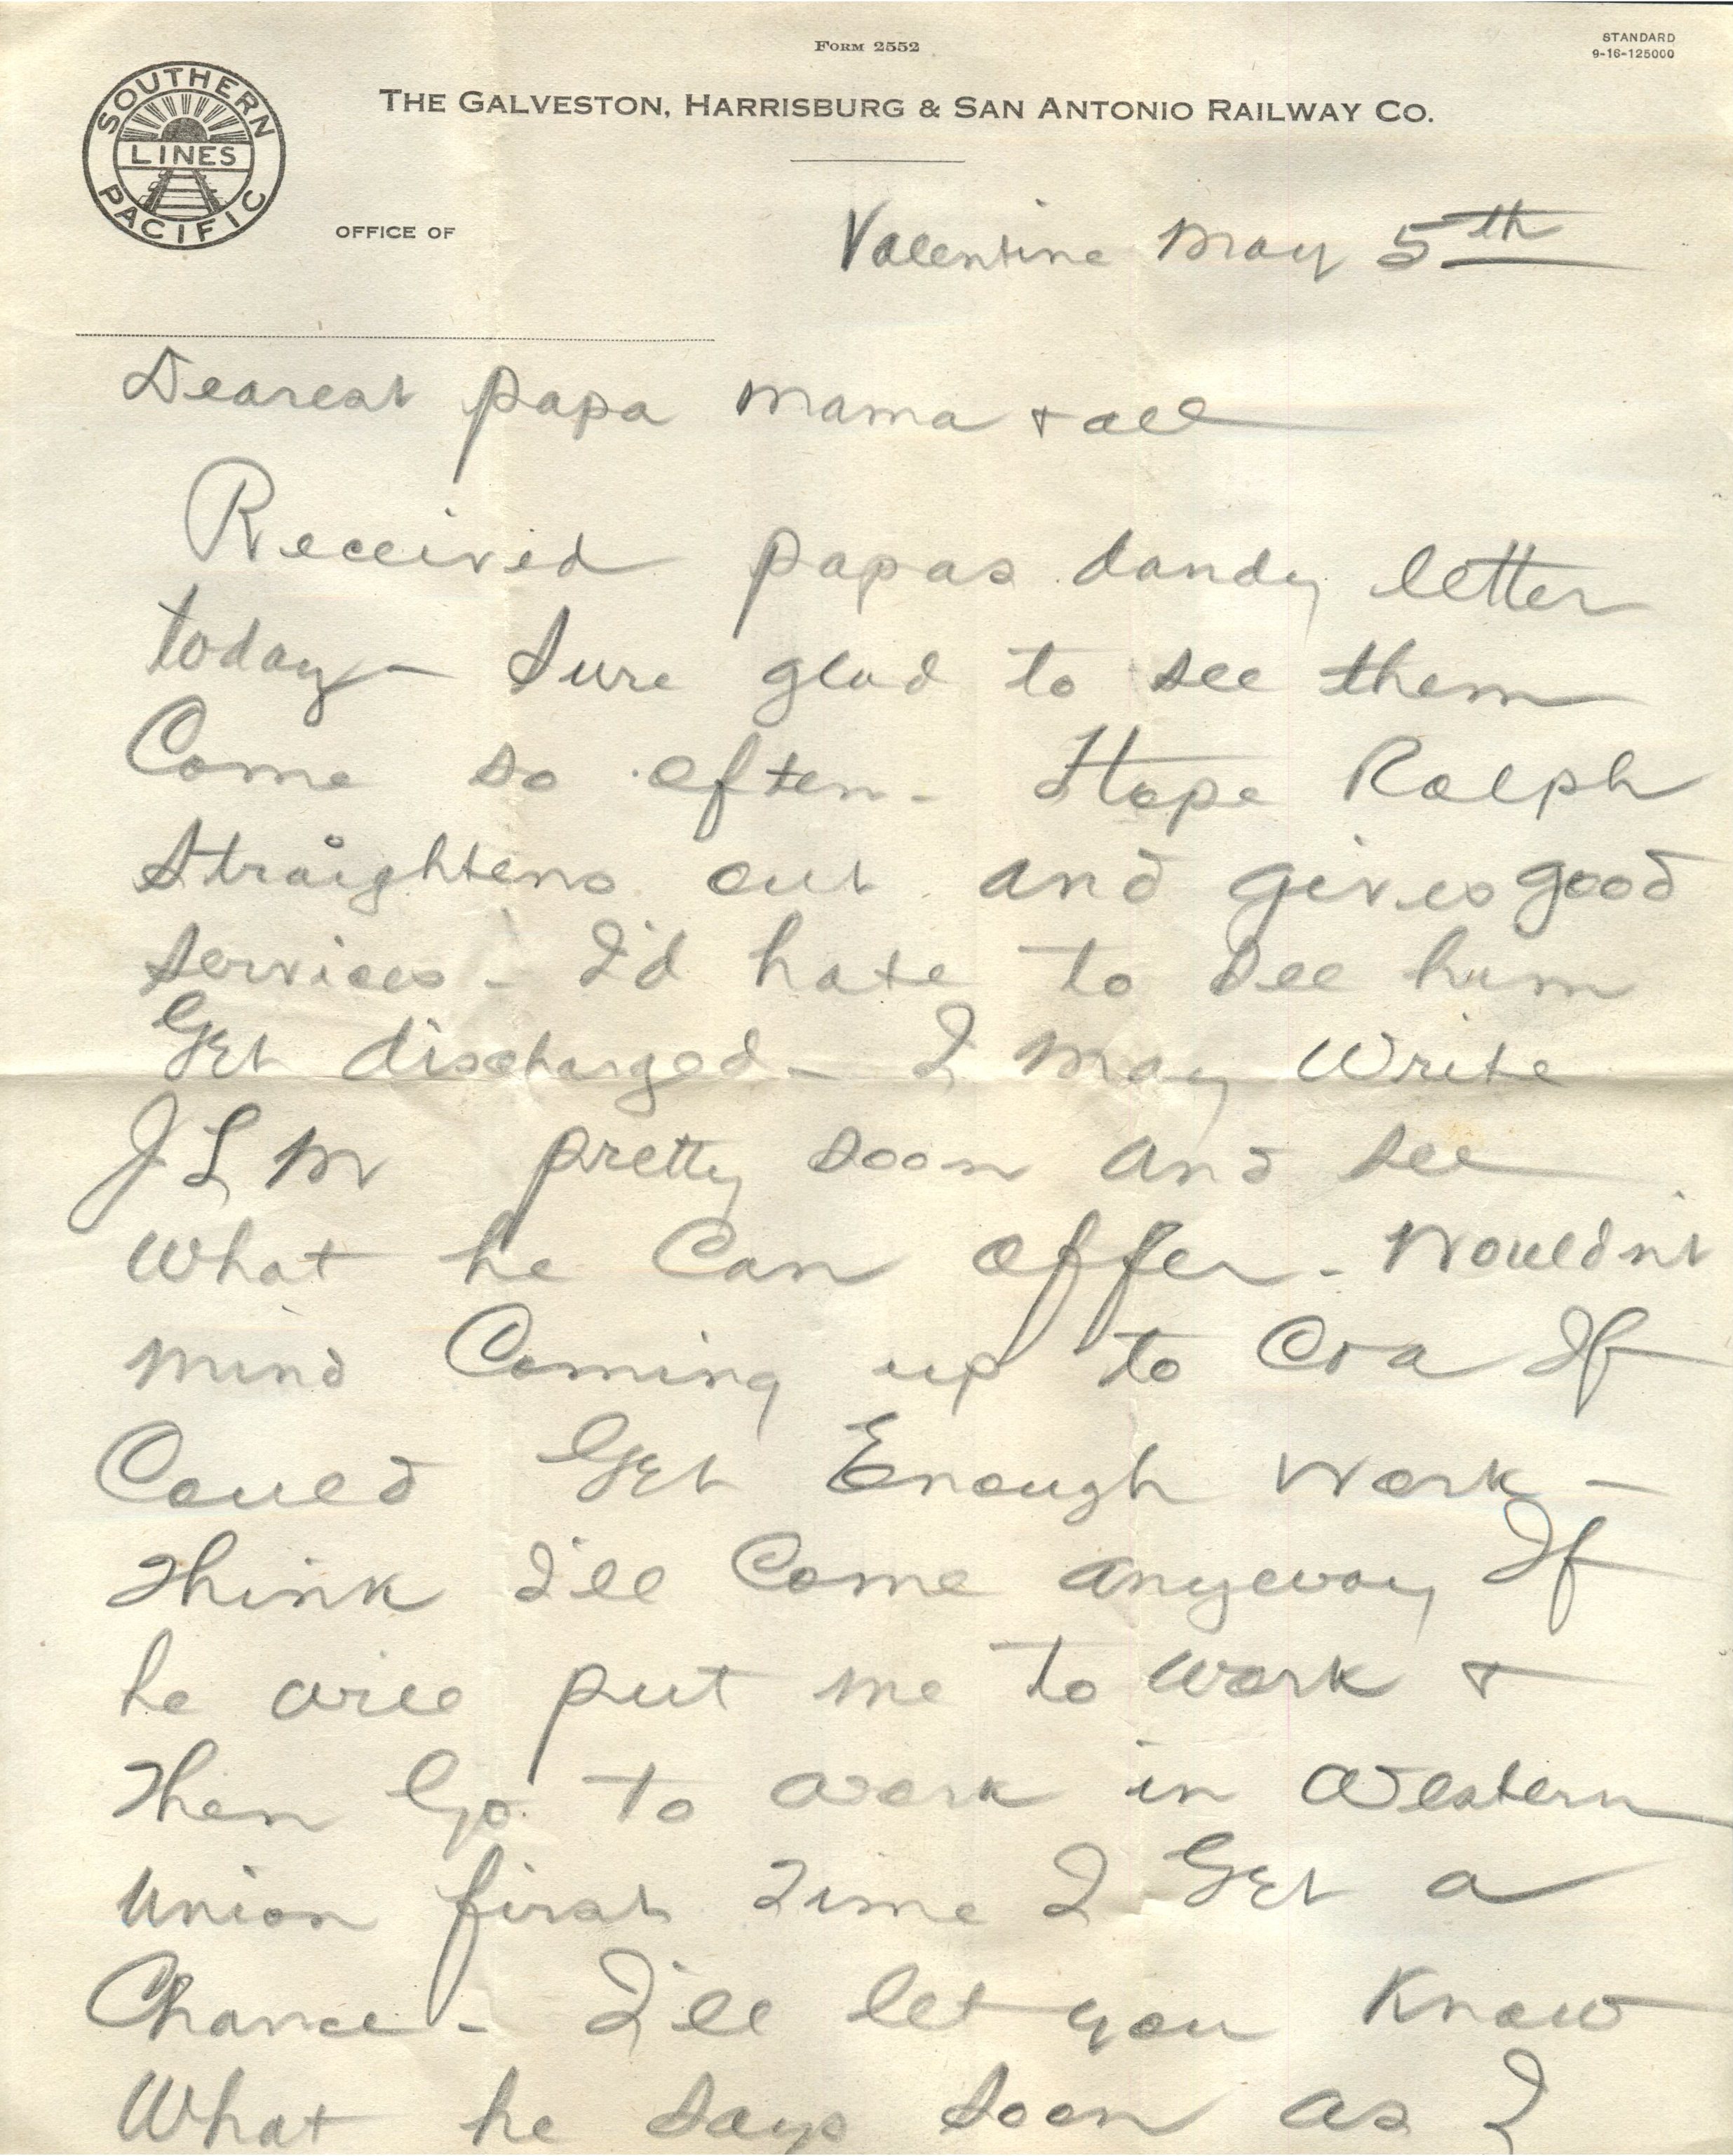 FORM 2552
STANDARD
9-16-125000
THE GALVESTON, HARRISBURG & SAN ANTONIO RAILWAY CO.
SOUTHERN
LINES
PACIFIC
OFFICE OF
Valentine May 5th
Dearest papa mama + all
Received papas dandy letter
today - Sure glad to see them
Come so often - Hope Ralph
Straightens out and gives good
Services - I'd hate to See him
Get discharged - I may Write
J L M pretty soon and see
What he Can offer - Wouldn't
mind Coming up to Cra If
Could Get Enough Work -
Think I'll Come anyway If
he will put me to work +
Then Go to work in Western
Union first Time I Get a
Chance - I'll let you Know
What he Says Soon as I